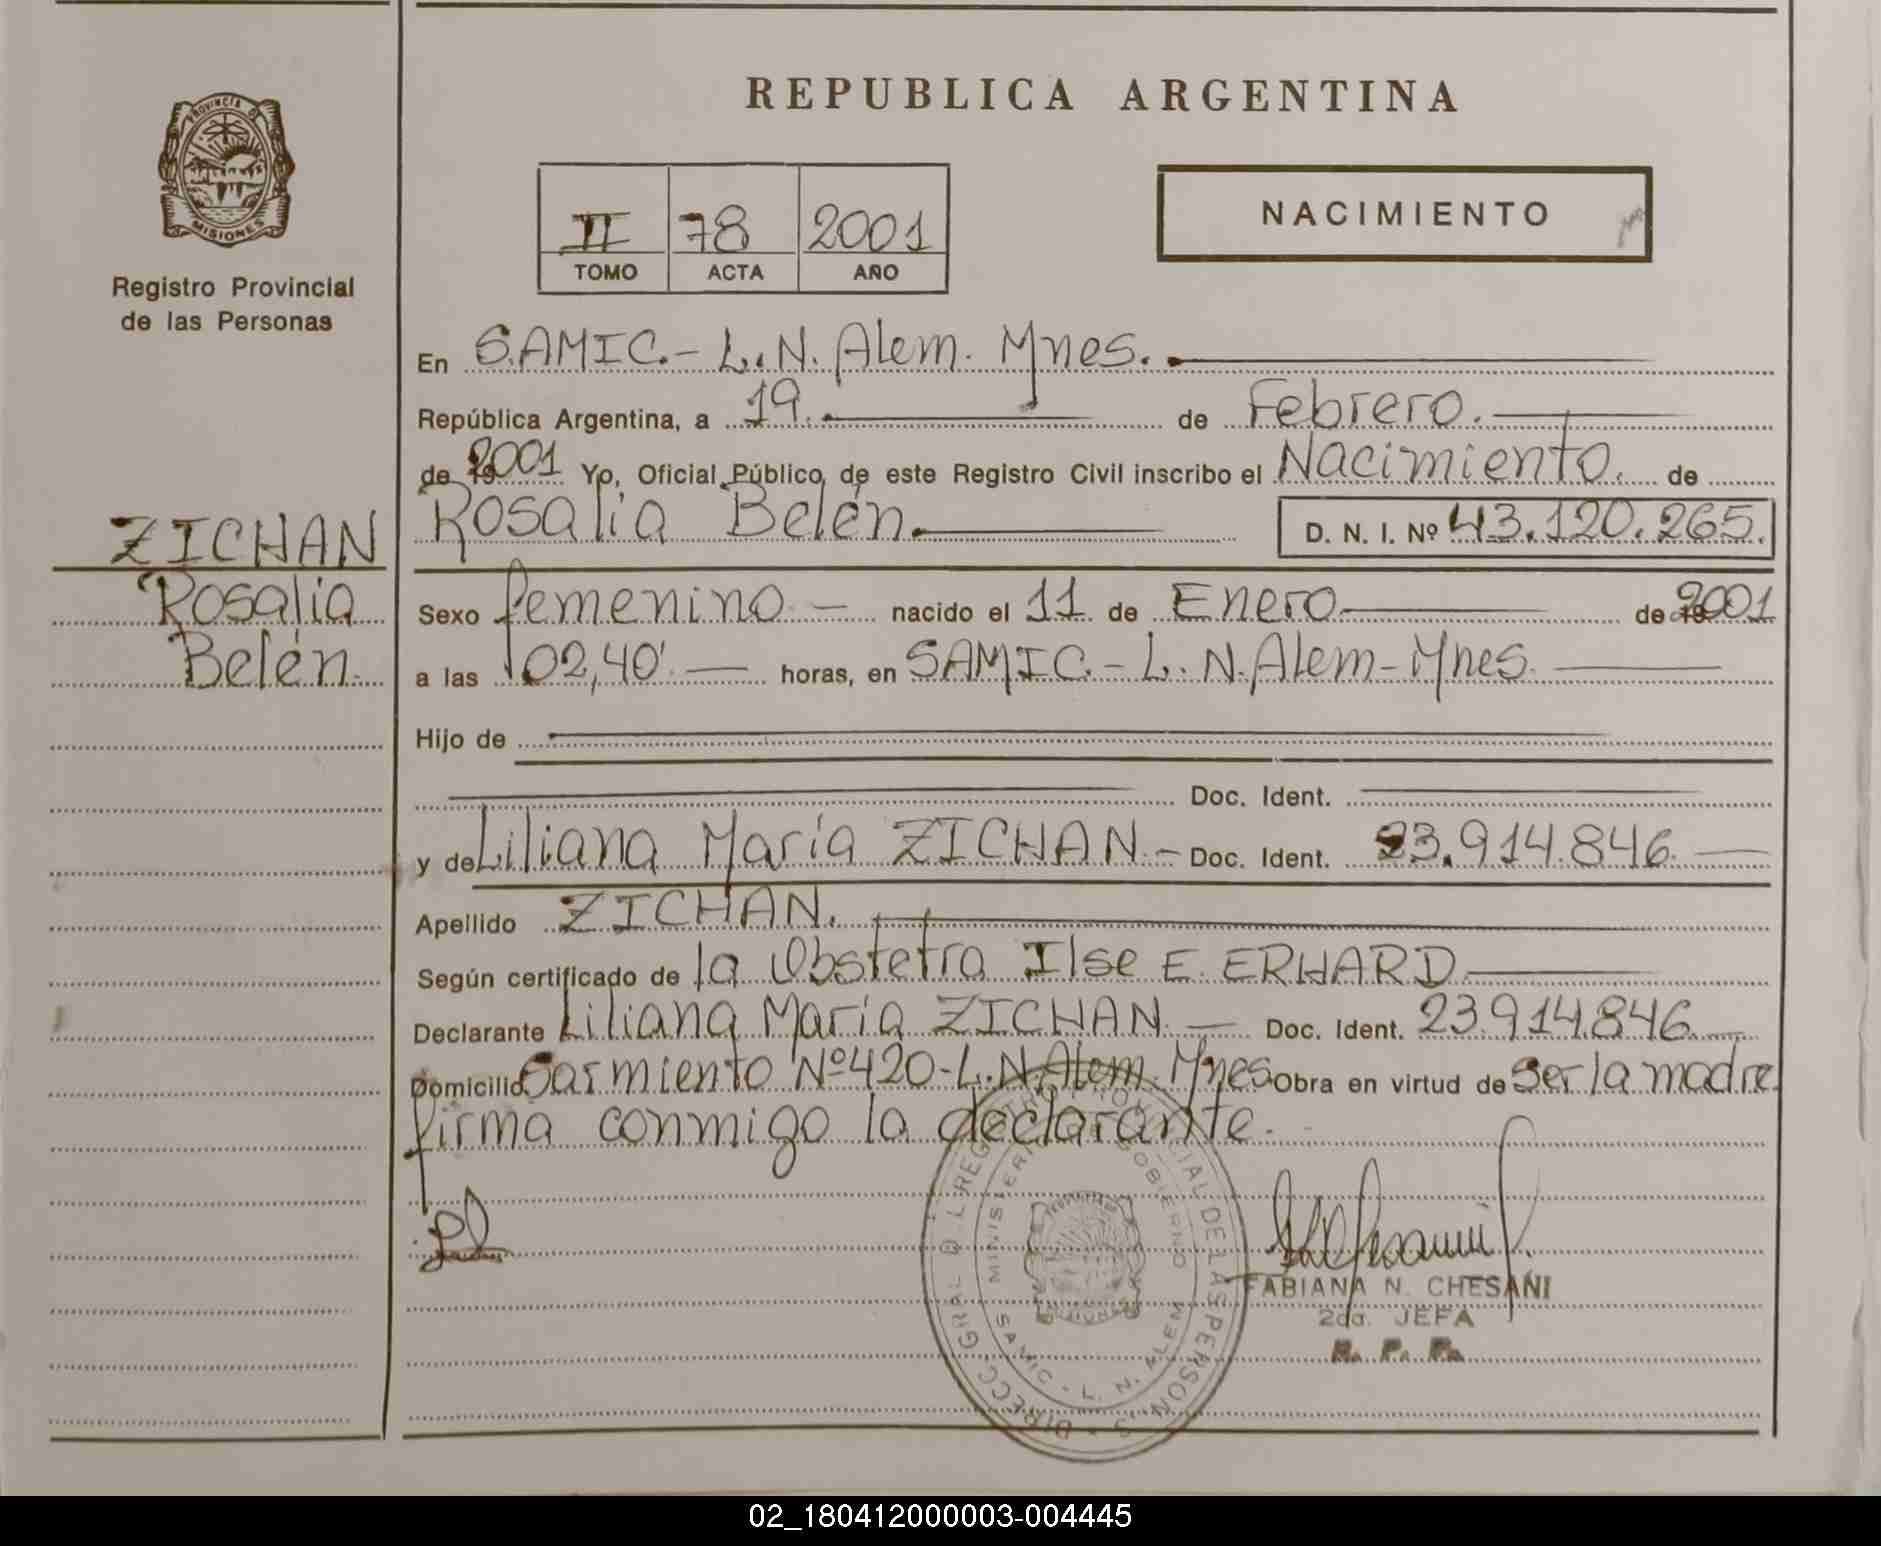 REPUBLICA ARGENTINA
PROVINCIA DE
MISIONES
Registro Provincial
de las Personas
II 78 2001
TOMO ACTA AÑO
NACIMIENTO
En S.AMIC.- L.N. Alem. Mnes.
República Argentina, a 19. de Febrero.
de 2001 Yo, Oficial Público de este Registro Civil inscribo el Nacimiento. de
Rosalia Belén. D. N. I. Nº 43.120.265.
ZICHAN
Rosalia
Belén.
Sexo femenino - nacido el 11 de Enero de 2001
a las 02,40' horas, en SAMIC.- L. N. Alem - Mnes.
Hijo de
Doc. Ident.
y de Liliana María ZICHAN.- Doc. Ident. 23.914.846.
Apellido ZICHAN.
Según certificado de la Obstetra Ilse E. ERHARD
Declarante Liliana María ZICHAN. - Doc. Ident. 23.914.846.
Domicilio Sarmiento Nº 420 - L.N. Alem. Mnes. Obra en virtud de Ser la madre
firma conmigo la declarante.
DIRECC GRAL D L REGISTRO PROVINCIAL DE LAS PERSONAS
MINISTERIO GOBIERNO
SAMIC - L. N. ALEM
FABIANA N. CHESANI
2da. JEFA
R. P. P.
02_180412000003-004445